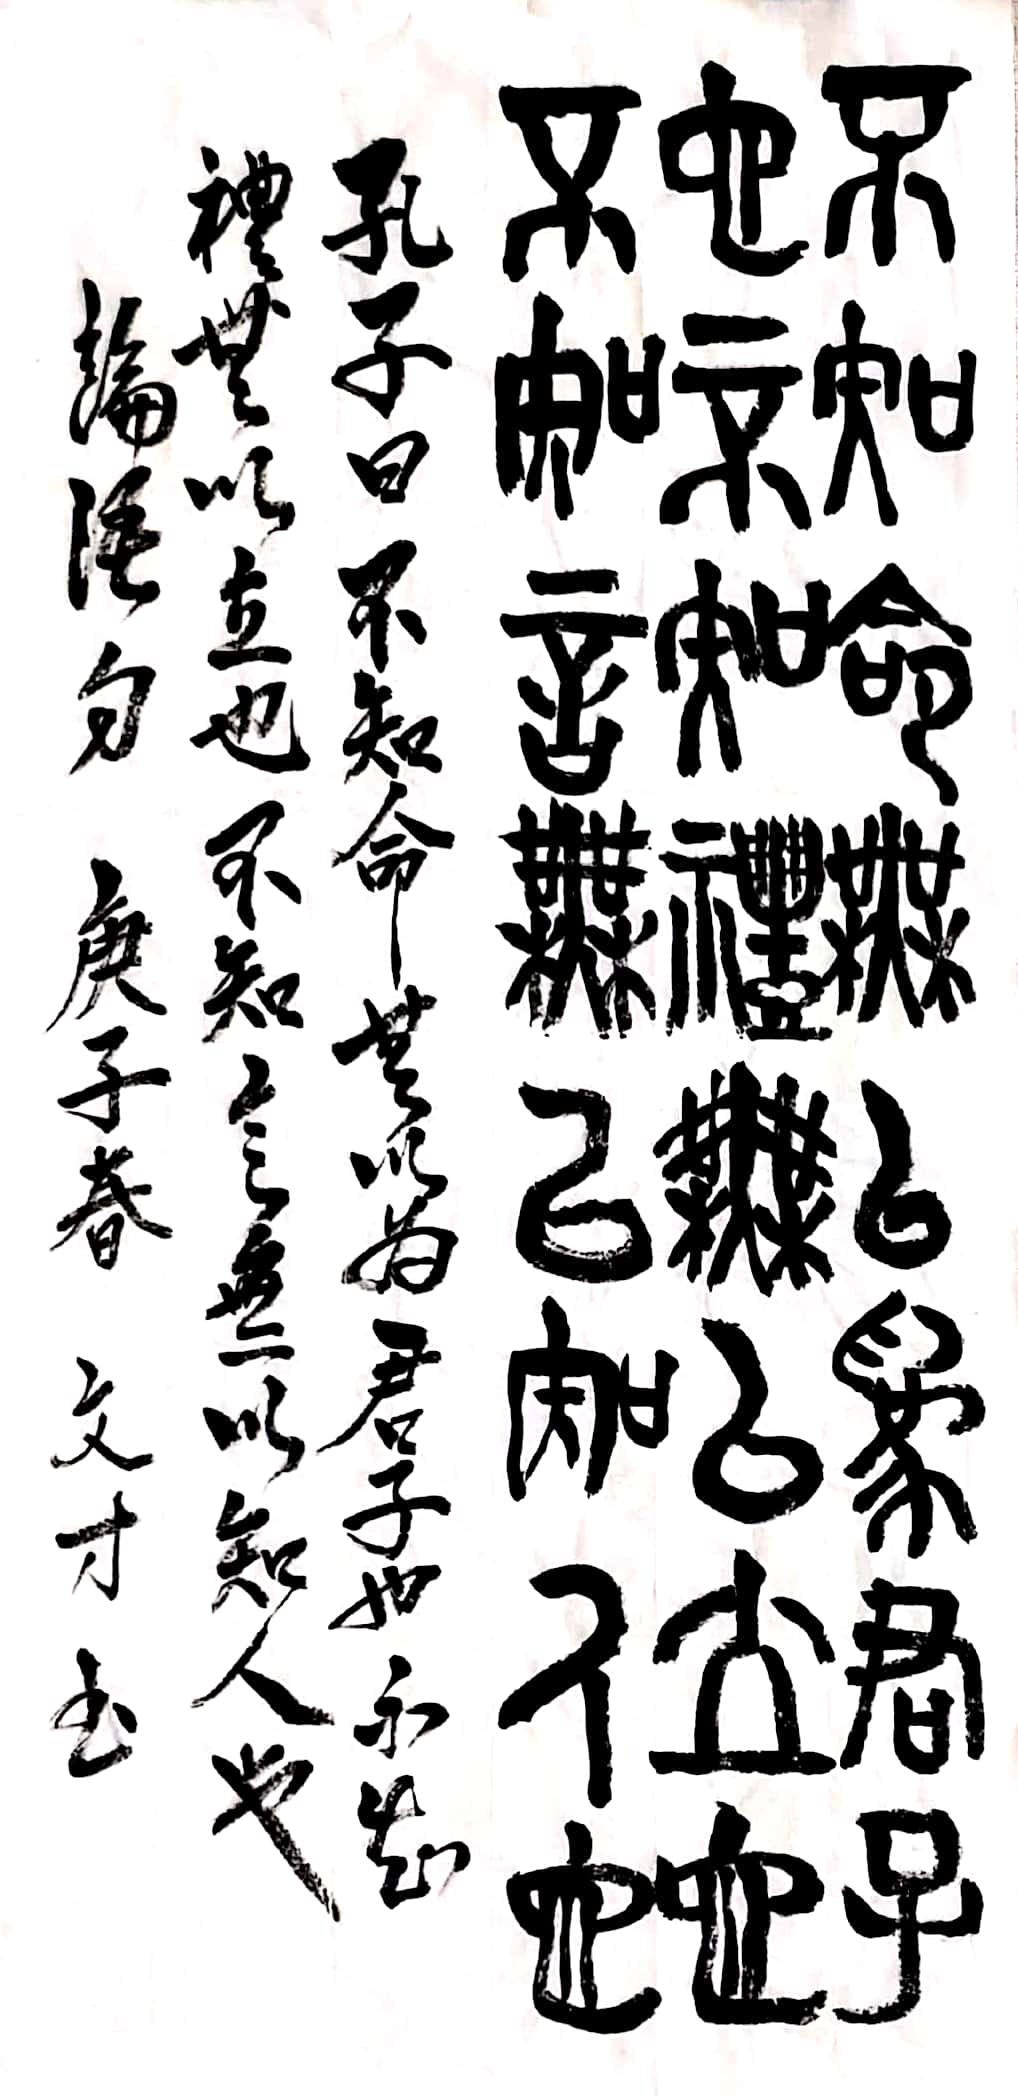 不知命無以為君子
也不知禮無以立也
不知言無以知人也
孔子曰不知命無以為君子也不知
禮無以立也不知言無以知人也
論語句庚子春文才书